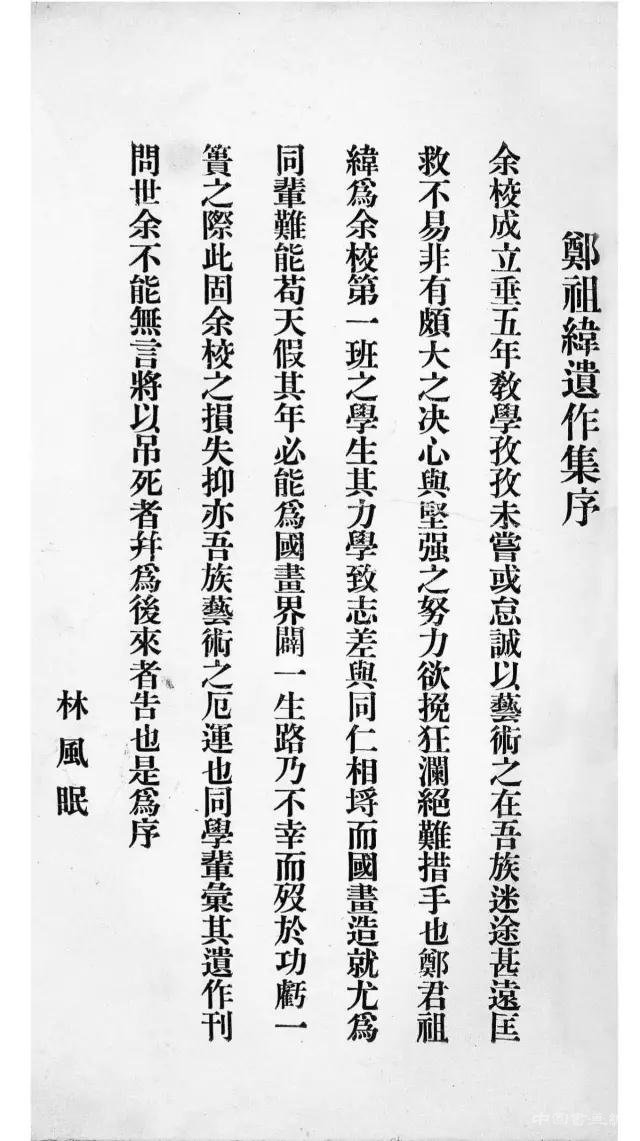 鄭祖緯遺作集序
余校成立垂五年教學孜孜未嘗或怠誠以藝術之在吾族迷途甚遠匡
救不易非有頗大之决心與堅强之努力欲挽狂瀾絕難措手也鄭君祖
緯爲余校第一班之學生其力學致志差與同仁相埓而國畫造就尤爲
同輩難能苟天假其年必能爲國畫界闢一生路乃不幸而歿於功虧一
簣之際此固余校之損失抑亦吾族藝術之厄運也同學輩彙其遺作刊
問世余不能無言將以吊死者幷爲後來者告也是爲序
林風眠